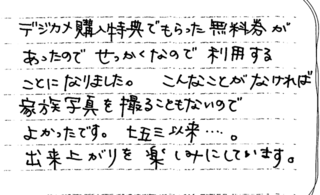 デジカメ購入特典でもらった無料券が
あったので せっかくなので 利用する
ことになりました。 こんなことがなければ
家族写真を撮ることもないので
よかったです。 七五三以来…。
出来上がりを楽しみにしています。